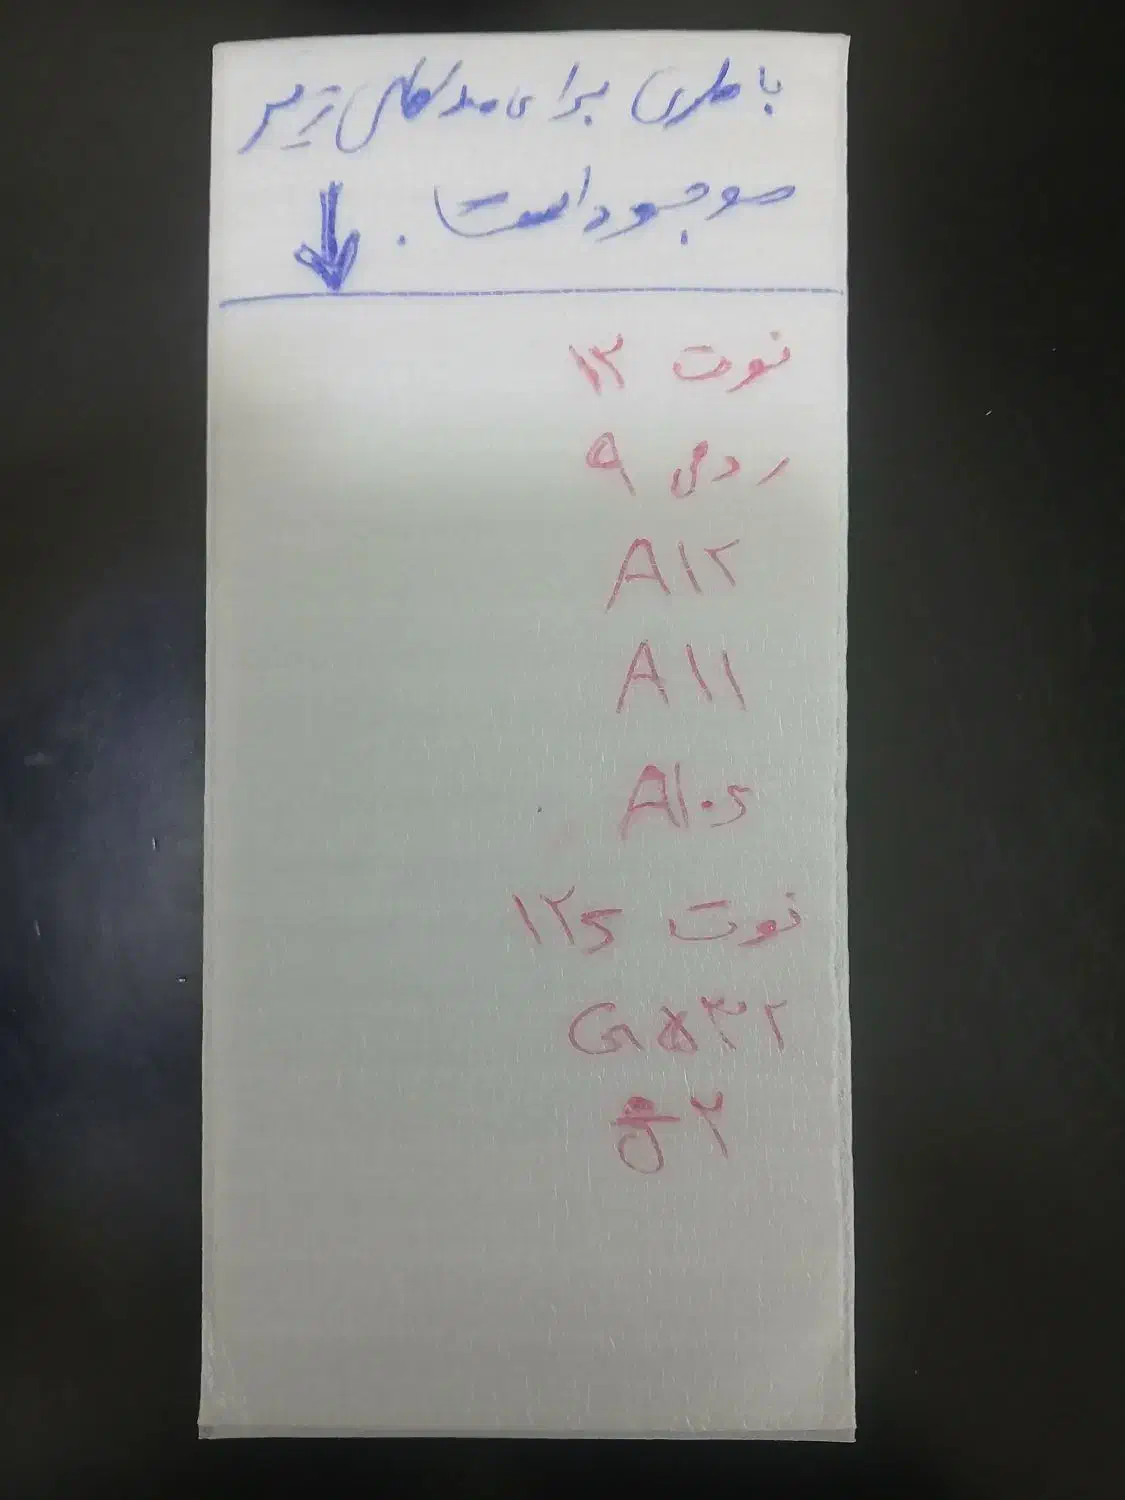 باطری برای مدلهای زیر
موجود است.
نوت ۱۳
ردمی ۹
A۱۲
A۱۱
A۱۰s
نوت ۱۲s
G۵۳۲
j۲